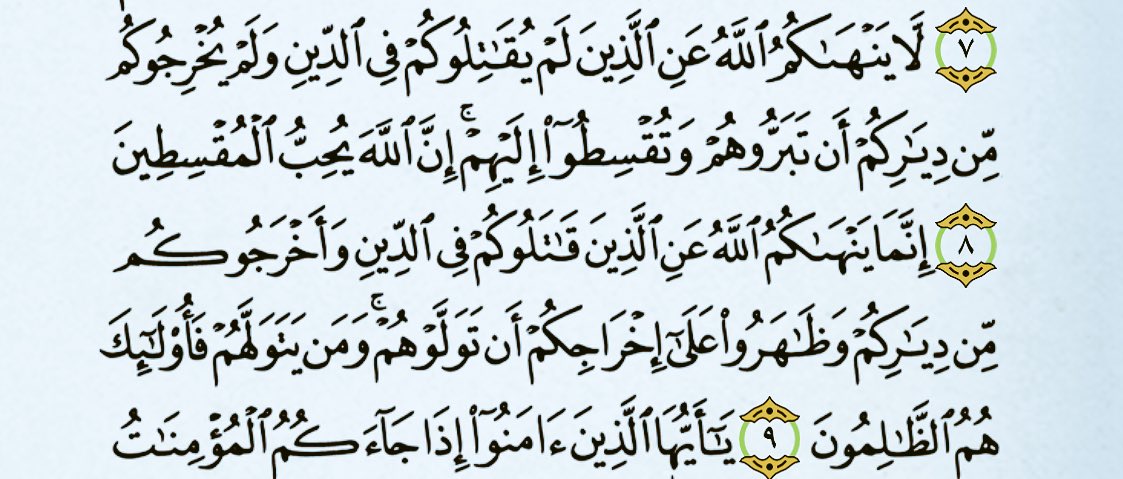 ٧ لَّا يَنْهَىٰكُمُ ٱللَّهُ عَنِ ٱلَّذِينَ لَمْ يُقَٰتِلُوكُمْ فِي ٱلدِّينِ وَلَمْ يُخْرِجُوكُم
مِّن دِيَٰرِكُمْ أَن تَبَرُّوهُمْ وَتُقْسِطُوٓا۟ إِلَيْهِمْ ۚ إِنَّ ٱللَّهَ يُحِبُّ ٱلْمُقْسِطِينَ
٨ إِنَّمَا يَنْهَىٰكُمُ ٱللَّهُ عَنِ ٱلَّذِينَ قَٰتَلُوكُمْ فِي ٱلدِّينِ وَأَخْرَجُوكُم
مِّن دِيَٰرِكُمْ وَظَٰهَرُوا۟ عَلَىٰٓ إِخْرَاجِكُمْ أَن تَوَلَّوْهُمْ ۚ وَمَن يَتَوَلَّهُمْ فَأُو۟لَٰٓئِكَ
هُمُ ٱلظَّٰلِمُونَ ٩ يَٰٓأَيُّهَا ٱلَّذِينَ ءَامَنُوٓا۟ إِذَا جَآءَكُمُ ٱلْمُؤْمِنَٰتُ